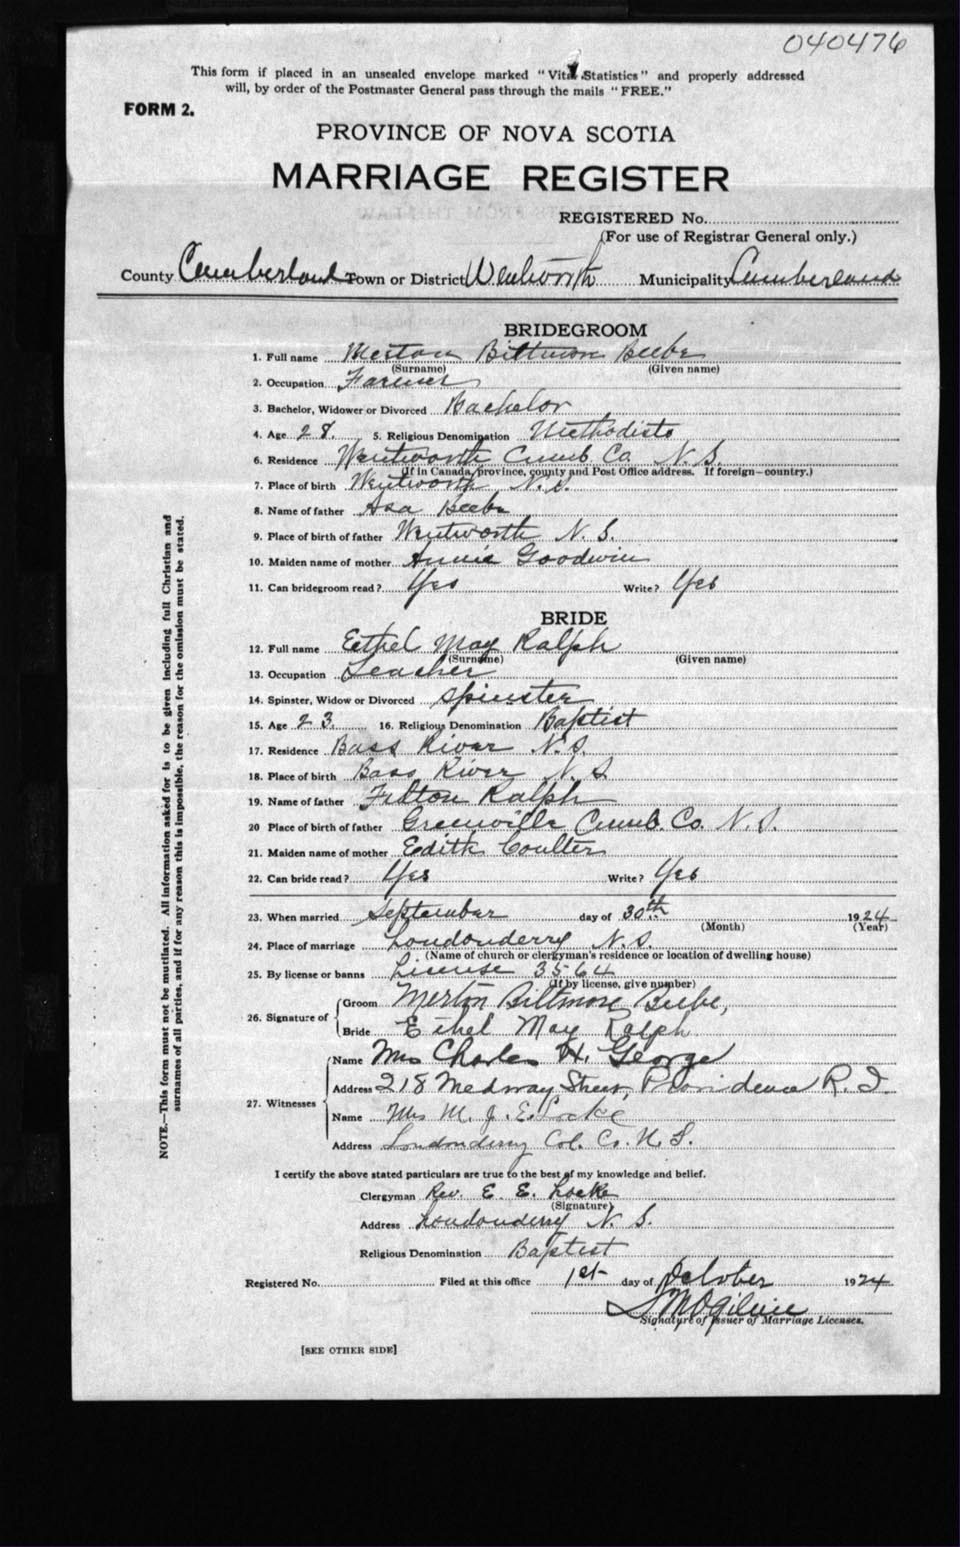 040476
This form if placed in an unsealed envelope marked "Vital Statistics" and properly addressed
will, by order of the Postmaster General pass through the mails "FREE."
FORM 2.
PROVINCE OF NOVA SCOTIA
MARRIAGE REGISTER
REGISTERED No.
(For use of Registrar General only.)
County Cumberland Town or District Wentworth Municipality Cumberland
BRIDEGROOM
1. Full name Merton Biltmore Beebe
(Surname) (Given name)
2. Occupation Farmer
3. Bachelor, Widower or Divorced Bachelor
4. Age 28. 5. Religious Denomination Methodist
6. Residence Wentworth Cumb. Co. N.S.
(If in Canada, province, county and Post Office address. If foreign—country.)
7. Place of birth Wentworth N.S.
8. Name of father Asa Beebe
9. Place of birth of father Wentworth N.S.
10. Maiden name of mother Annie Goodwin
11. Can bridegroom read? Yes Write? Yes
BRIDE
12. Full name Ethel May Ralph
(Surname) (Given name)
13. Occupation Teacher
14. Spinster, Widow or Divorced Spinster
15. Age 23. 16. Religious Denomination Baptist
17. Residence Bass River N.S.
18. Place of birth Bass River N.S.
19. Name of father Ralph
20 Place of birth of father Greenville Cumb. Co. N.S.
21. Maiden name of mother Edith Coulter
22. Can bride read? Yes Write? Yes
23. When married September day of 30th 1924
(Month) (Year)
24. Place of marriage Londonderry N.S.
(Name of church or clergyman's residence or location of dwelling house)
25. By license or banns License 3564
(If by license, give number)
26. Signature of Groom Merton Biltmore Beebe,
Bride Ethel May Ralph
27. Witnesses Name Mrs Charles H. George
Address 218 Medway Street, Providence R.I.
Name Mrs M. J. E. Locke
Address Londonderry Col. Co. N.S.
I certify the above stated particulars are true to the best of my knowledge and belief.
Clergyman Rev. E. E. Locke
(Signature)
Address Londonderry N.S.
Religious Denomination Baptist
Registered No. Filed at this office 1st day of October 1924
Signature of Issuer of Marriage Licenses.
[SEE OTHER SIDE]
NOTE.—This form must not be mutilated. All information asked for is to be given including full Christian and
surnames of all parties, and if for any reason this is impossible, the reason for the omission must be stated.